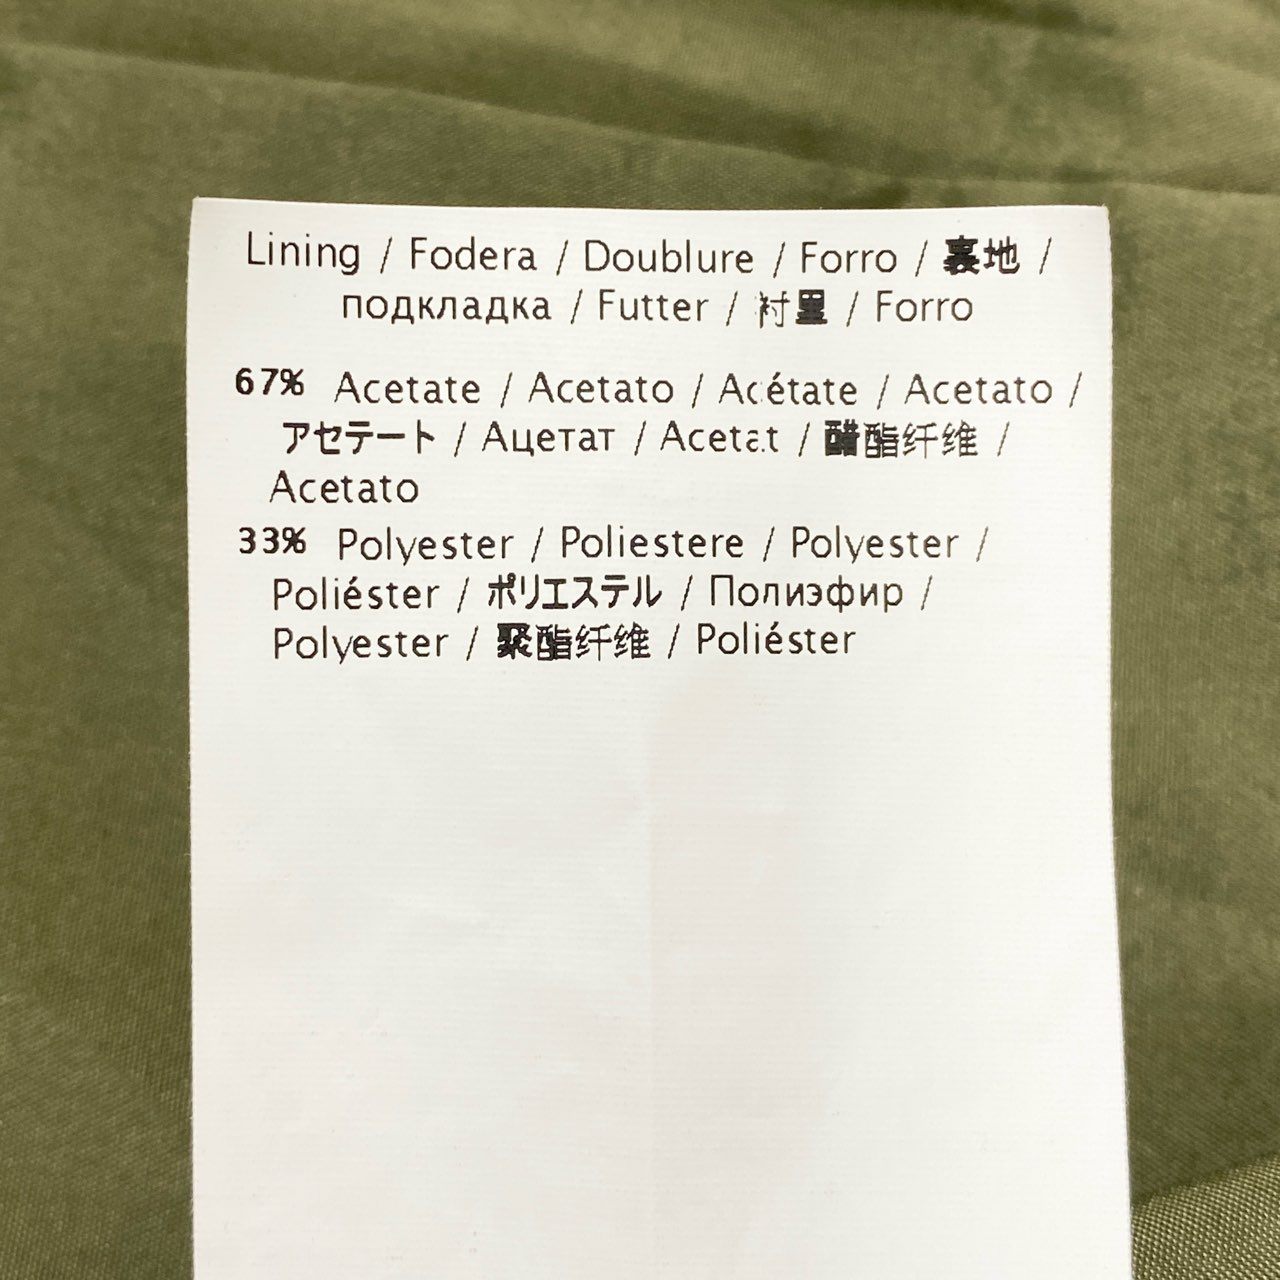 Lining / Fodera / Doublure / Forro / 裏地 /
подкладка / Futter / 衬里 / Forro
67% Acetate / Acetato / Acétate / Acetato /
アセテート / Ацетат / Acetat / 醋酯纤维 /
Acetato
33% Polyester / Poliestere / Polyester /
Poliéster / ポリエステル / Полиэфир /
Polyester / 聚酯纤维 / Poliéster